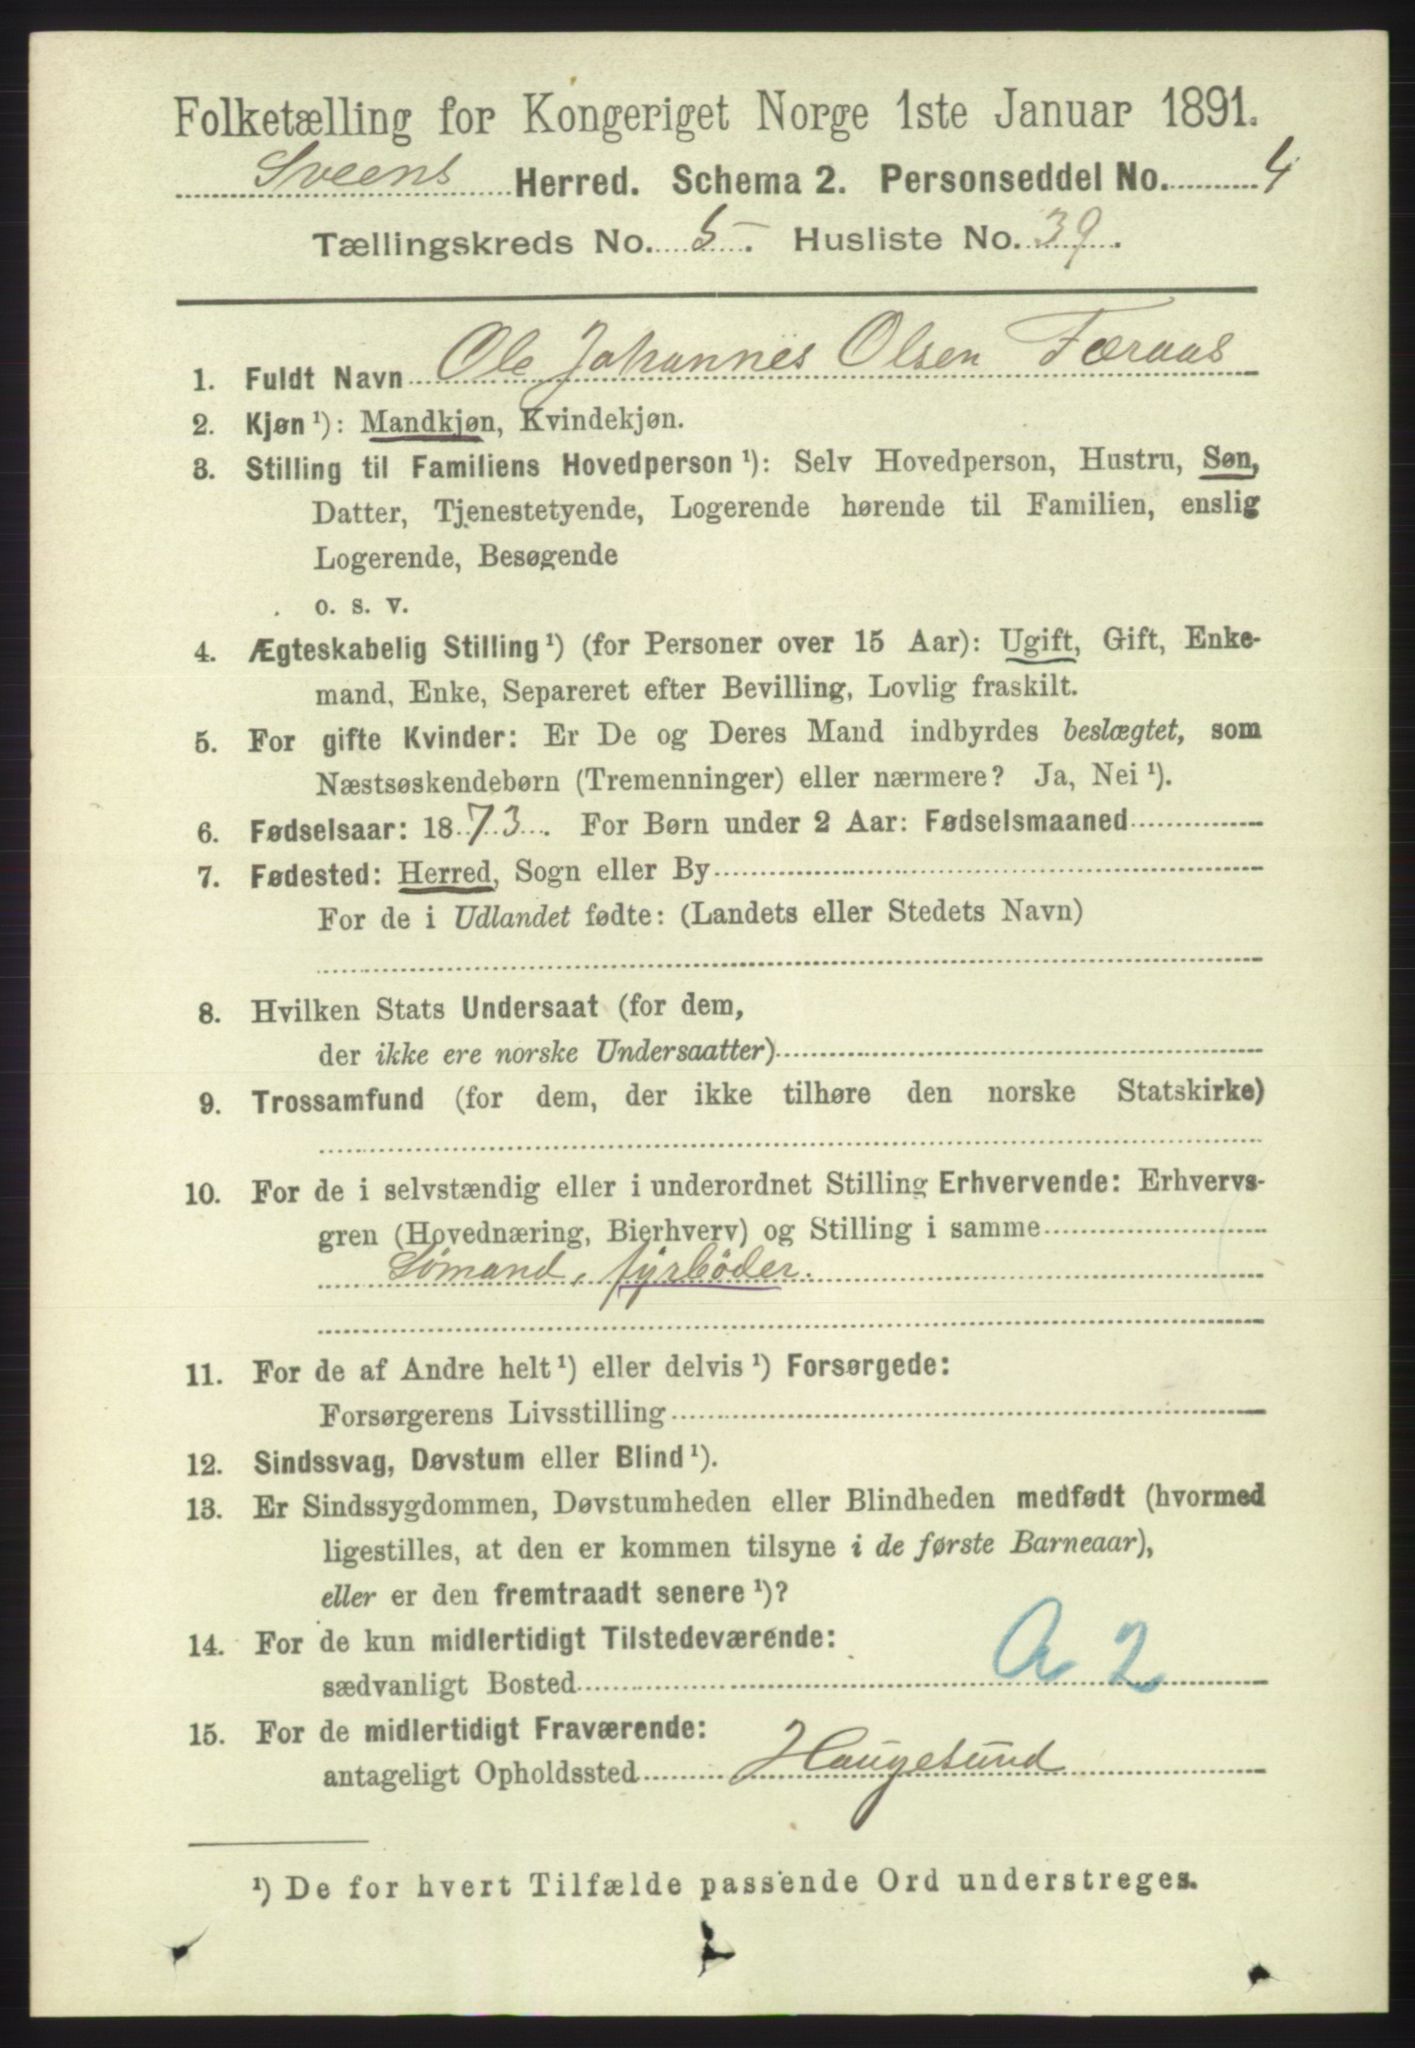 Folketælling for Kongeriget Norge 1ste Januar 1891.
Sveens Herred. Schema 2. Personseddel No. 4
Tællingskreds No. 5. Husliste No. 39.
1. Fuldt Navn Ole Johannes Olsen Færaas
2. Kjøn ¹): Mandkjøn, Kvindekjøn.
3. Stilling til Familiens Hovedperson ¹): Selv Hovedperson, Hustru, Søn,
Datter, Tjenestetyende, Logerende hørende til Familien, enslig
Logerende, Besøgende
o. s. v.
4. Ægteskabelig Stilling ¹) (for Personer over 15 Aar): Ugift, Gift, Enke-
mand, Enke, Separeret efter Bevilling, Lovlig fraskilt.
5. For gifte Kvinder: Er De og Deres Mand indbyrdes beslægtet, som
Næstsøskendebørn (Tremenninger) eller nærmere? Ja, Nei ¹).
6. Fødselsaar: 1873. For Børn under 2 Aar: Fødselsmaaned
7. Fødested: Herred, Sogn eller By
For de i Udlandet fødte: (Landets eller Stedets Navn)
8. Hvilken Stats Undersaat (for dem,
der ikke ere norske Undersaatter)
9. Trossamfund (for dem, der ikke tilhøre den norske Statskirke)
10. For de i selvstændig eller i underordnet Stilling Erhvervende: Erhvervs-
gren (Hovednæring, Bierhverv) og Stilling i samme
Sømand, fyrbøder.
11. For de af Andre helt ¹) eller delvis ¹) Forsørgede:
Forsørgerens Livsstilling
12. Sindssvag, Døvstum eller Blind ¹).
13. Er Sindssygdommen, Døvstumheden eller Blindheden medfødt (hvormed
ligestilles, at den er kommen tilsyne i de første Barneaar),
eller er den fremtraadt senere ¹)?
14. For de kun midlertidigt Tilstedeværende:
sædvanligt Bosted A 2
15. For de midlertidigt Fraværende:
antageligt Opholdssted Haugesund
¹) De for hvert Tilfælde passende Ord understreges.